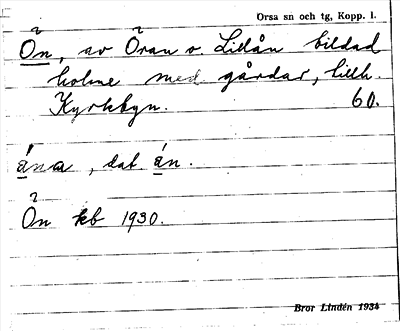 Orsa sn och tg, Kopp. l.
Ön, av Öran o. Lillån bildad
holme med gårdar, tillh.
Kyrkbyn. 60.
ána, dat. án.
Ön kb 1930.
Bror Lindén 1934